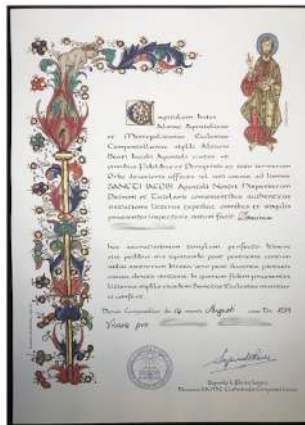 Capitulum huius
Almae Apostolicae
et Metropolitanae Ecclesiae
Compostellanae sigilli Altaris
Beati Iacobi Apostoli custos ut
omnibus Fidelibus et Peregrinis ex toto terrarum
Orbe devotionis affectu vel voti causa ad limina
SANCTI IACOBI Apostoli Nostri Hispaniarum
Patroni et Tutelaris convenientibus authenticas
visitationis litteras expediat, omnibus et singulis
praesentes inspecturis notum facit
hoc sacratissimum templum perfecto itinere
sive pedibus sive equitando post postrema centum
milia metrorum birota vero post ducenta pietatis
causa devote visitasse. In quorum fidem praesentes
litteras sigillo eiusdem Sanctae Ecclesiae munitas
ei confero.
Datum Compostellae die mensis Augusti anno Dni
Vicarie pro